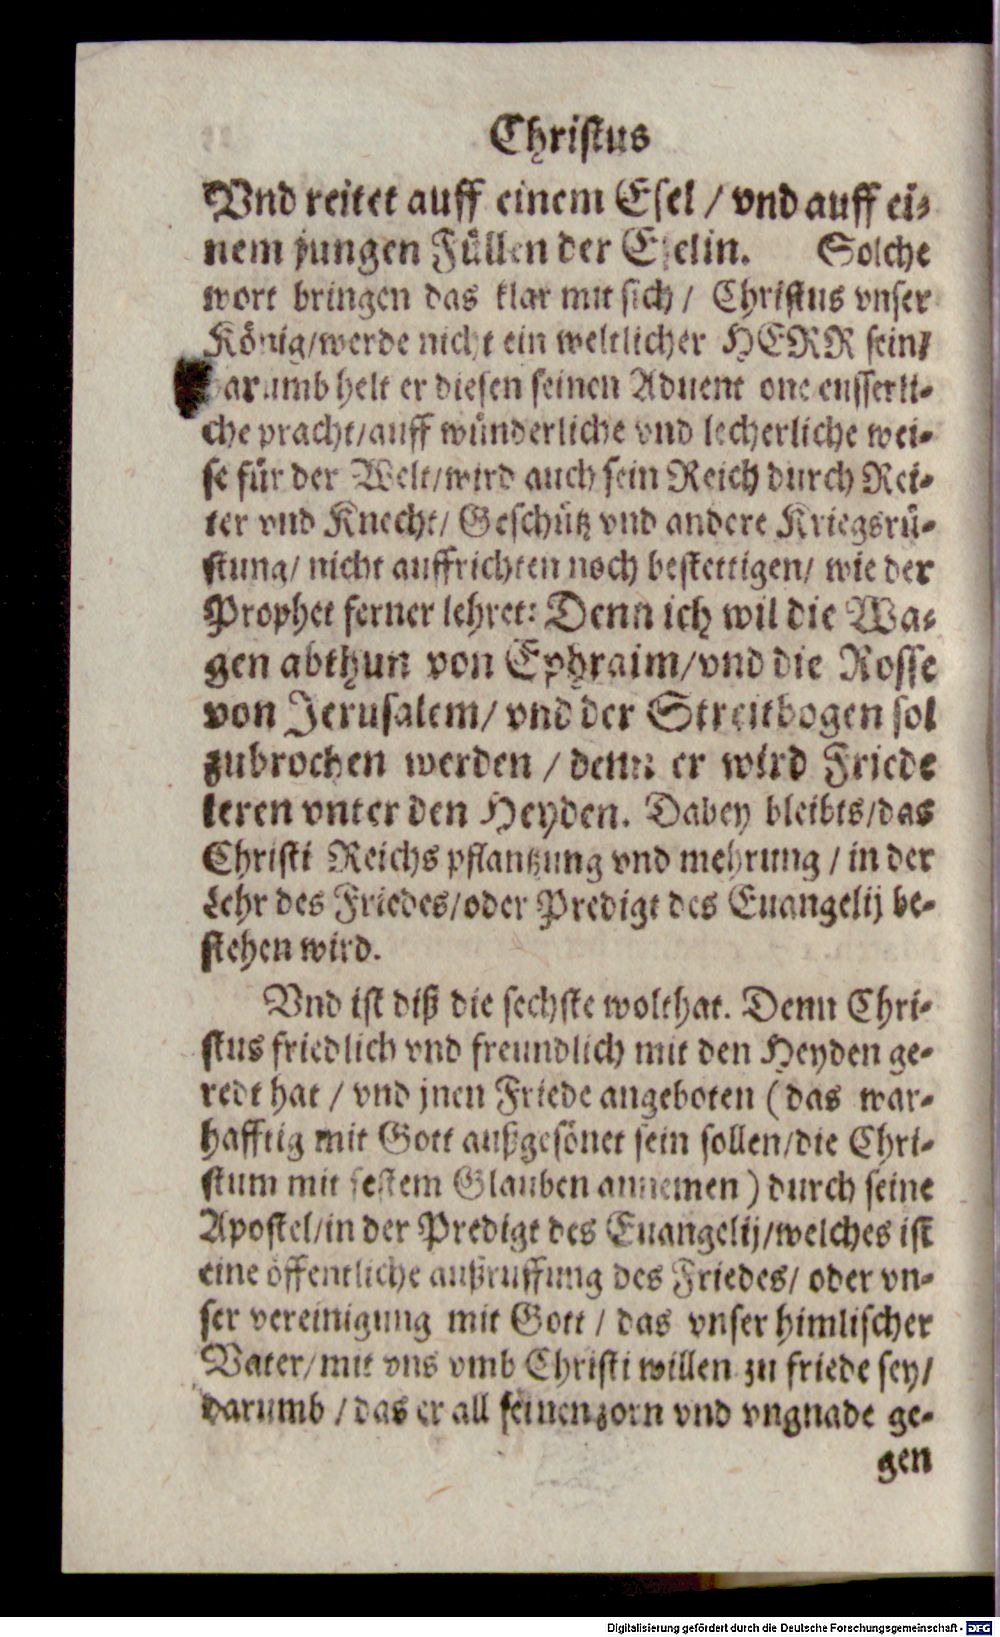 Christus
Vnd reitet auff einem Esel / vnd auff ei-
nem jungen Füllen der Eselin. Solche
wort bringen das klar mit sich / Christus vnser
König/werde nicht ein weltlicher HERR sein/
darumb helt er diesen seinen Aduent one eusserli-
che pracht/auff wünderliche vnd lecherliche wei-
se für der Welt/wird auch sein Reich durch Rei-
ter vnd Knecht/ Geschütz vnd andere Kriegsrü-
stung/ nicht auffrichten noch bestettigen/ wie der
Prophet ferner lehret: Denn ich wil die Wa-
gen abthun von Ephraim/vnd die Rosse
von Jerusalem/ vnd der Streitbogen sol
zubrochen werden / denn er wird Friede
leren vnter den Heyden. Dabey bleibts/das
Christi Reichs pflantzung vnd mehrung / in der
Lehr des Friedes/oder Predigt des Euangelij be-
stehen wird.
Vnd ist diß die sechste wolthat. Denn Chri-
stus friedlich vnd freundlich mit den Heyden ge-
redt hat / vnd jnen Friede angeboten (das war-
hafftig mit Gott außgesönet sein sollen/die Chri-
stum mit festem Glauben annemen) durch seine
Apostel/in der Predigt des Euangelij/welches ist
eine öffentliche außruffung des Friedes/ oder vn-
ser vereinigung mit Gott / das vnser himlischer
Vater/mit vns vmb Christi willen zu friede sey/
darumb / das er all seinen zorn vnd vngnade ge-
gen
Digitalisierung gefördert durch die Deutsche Forschungsgemeinschaft - DFG